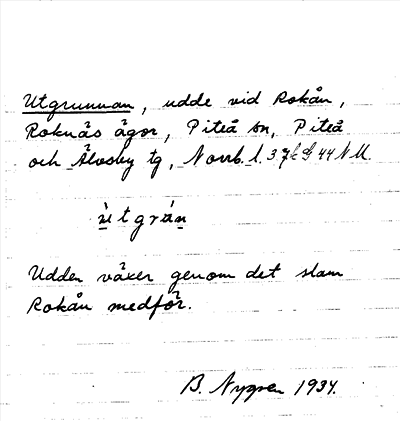 Utgrunnan, udde vid Rokån,
Roknäs ägor, Piteå sn, Piteå
och Älvsby tg, Norrb. l.
ùtgrán
Udden växer genom det slam
Rokån medför.
B. Nygren 1934.